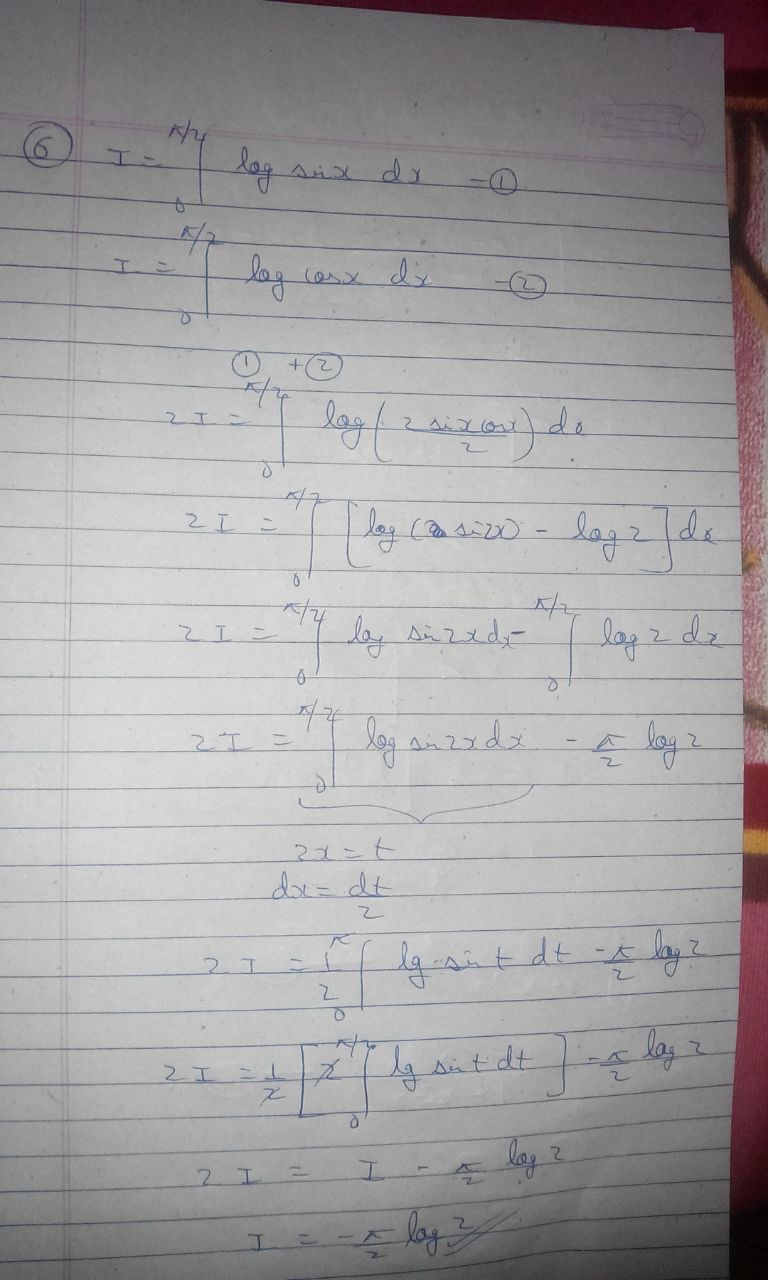 ⑥ I = ∫₀^{π/2} log sinx dx - ①
I = ∫₀^{π/2} log cosx dx - ②
① + ②
2I = ∫₀^{π/2} log( 2 sixcosx / 2 ) dx
2I = ∫₀^{π/2} [log (si2x) - log 2] dx
2I = ∫₀^{π/2} log sin 2x dx - ∫₀^{π/2} log 2 dx
2I = ∫₀^{π/2} log sin 2x dx - π/2 log 2
2x = t
dx = dt/2
2I = 1/2 ∫₀^{π} lg sin t dt - π/2 log 2
2I = 1/2 [ 2 ∫₀^{π/2} lg sin t dt ] - π/2 log 2
2I = I - π/2 log 2
I = -π/2 log 2